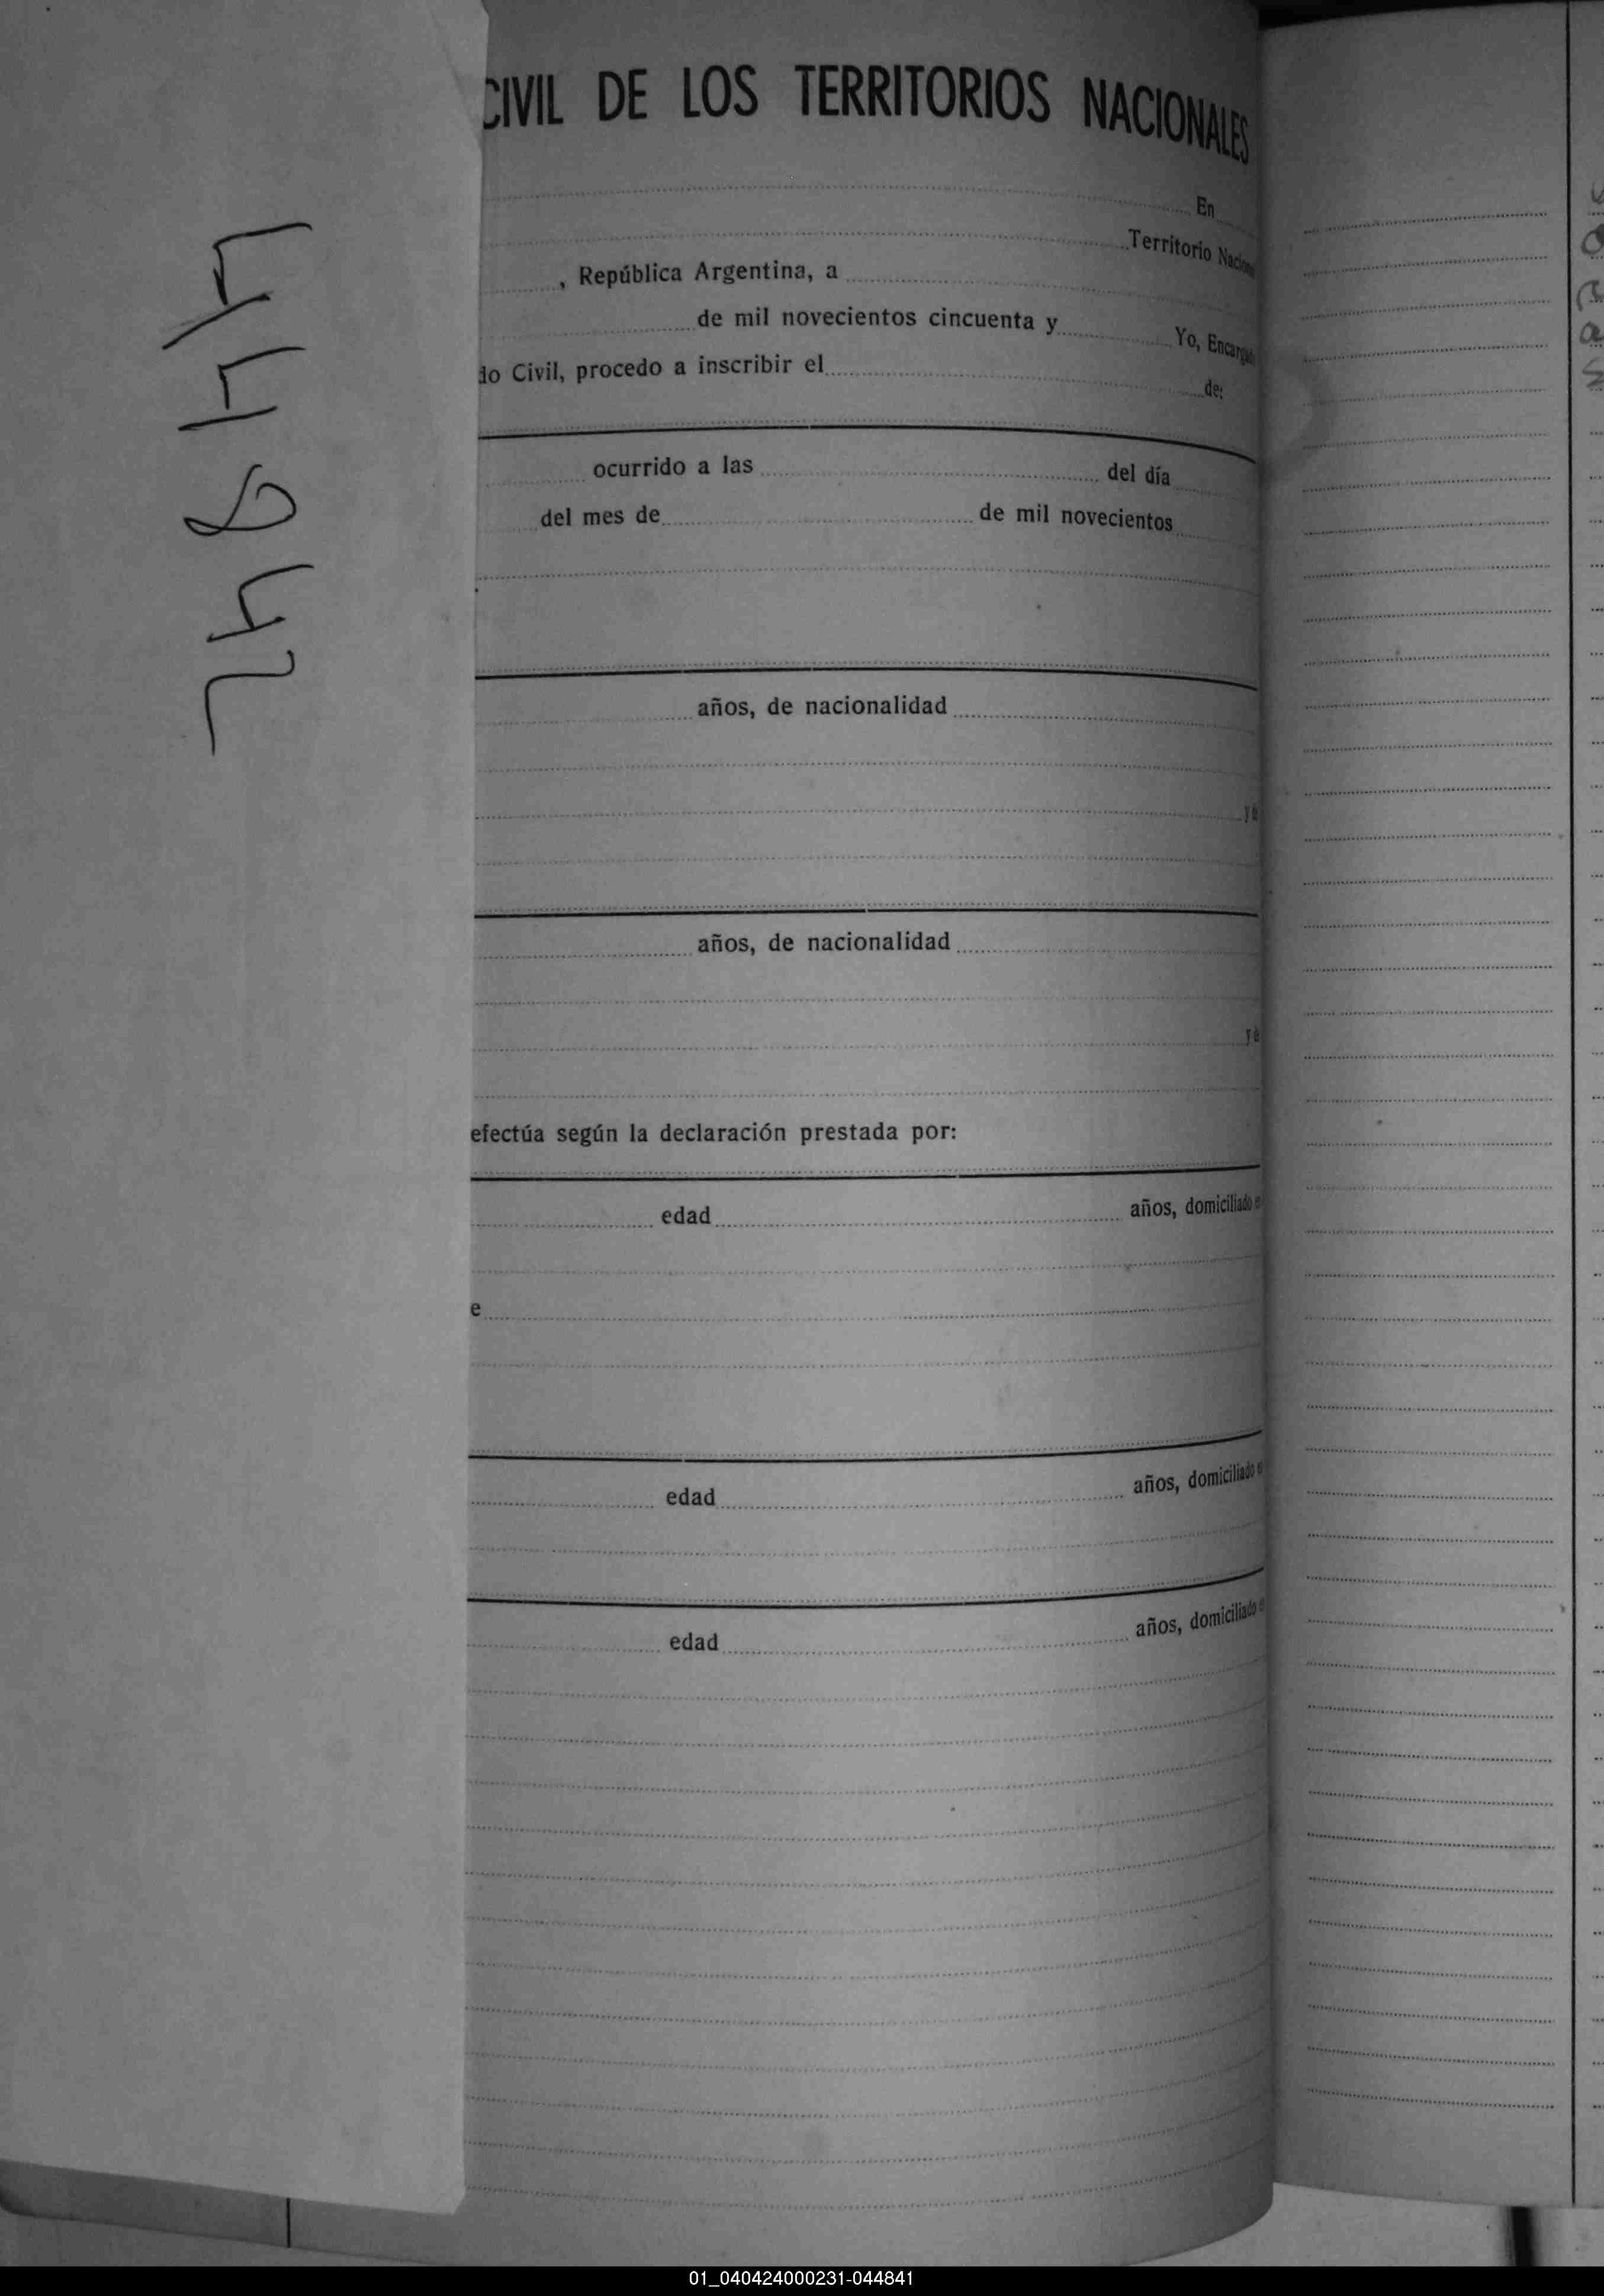 CIVIL DE LOS TERRITORIOS NACIONALES
En
Territorio
, República Argentina, a
de mil novecientos cincuenta y Yo,
do Civil, procedo a inscribir el de:
ocurrido a las del día
del mes de de mil novecientos
años, de nacionalidad
y de
años, de nacionalidad
y de
efectúa según la declaración prestada por:
edad años, domiciliado
e
edad años, domiciliado
edad años, domiciliado
01_040424000231-044841